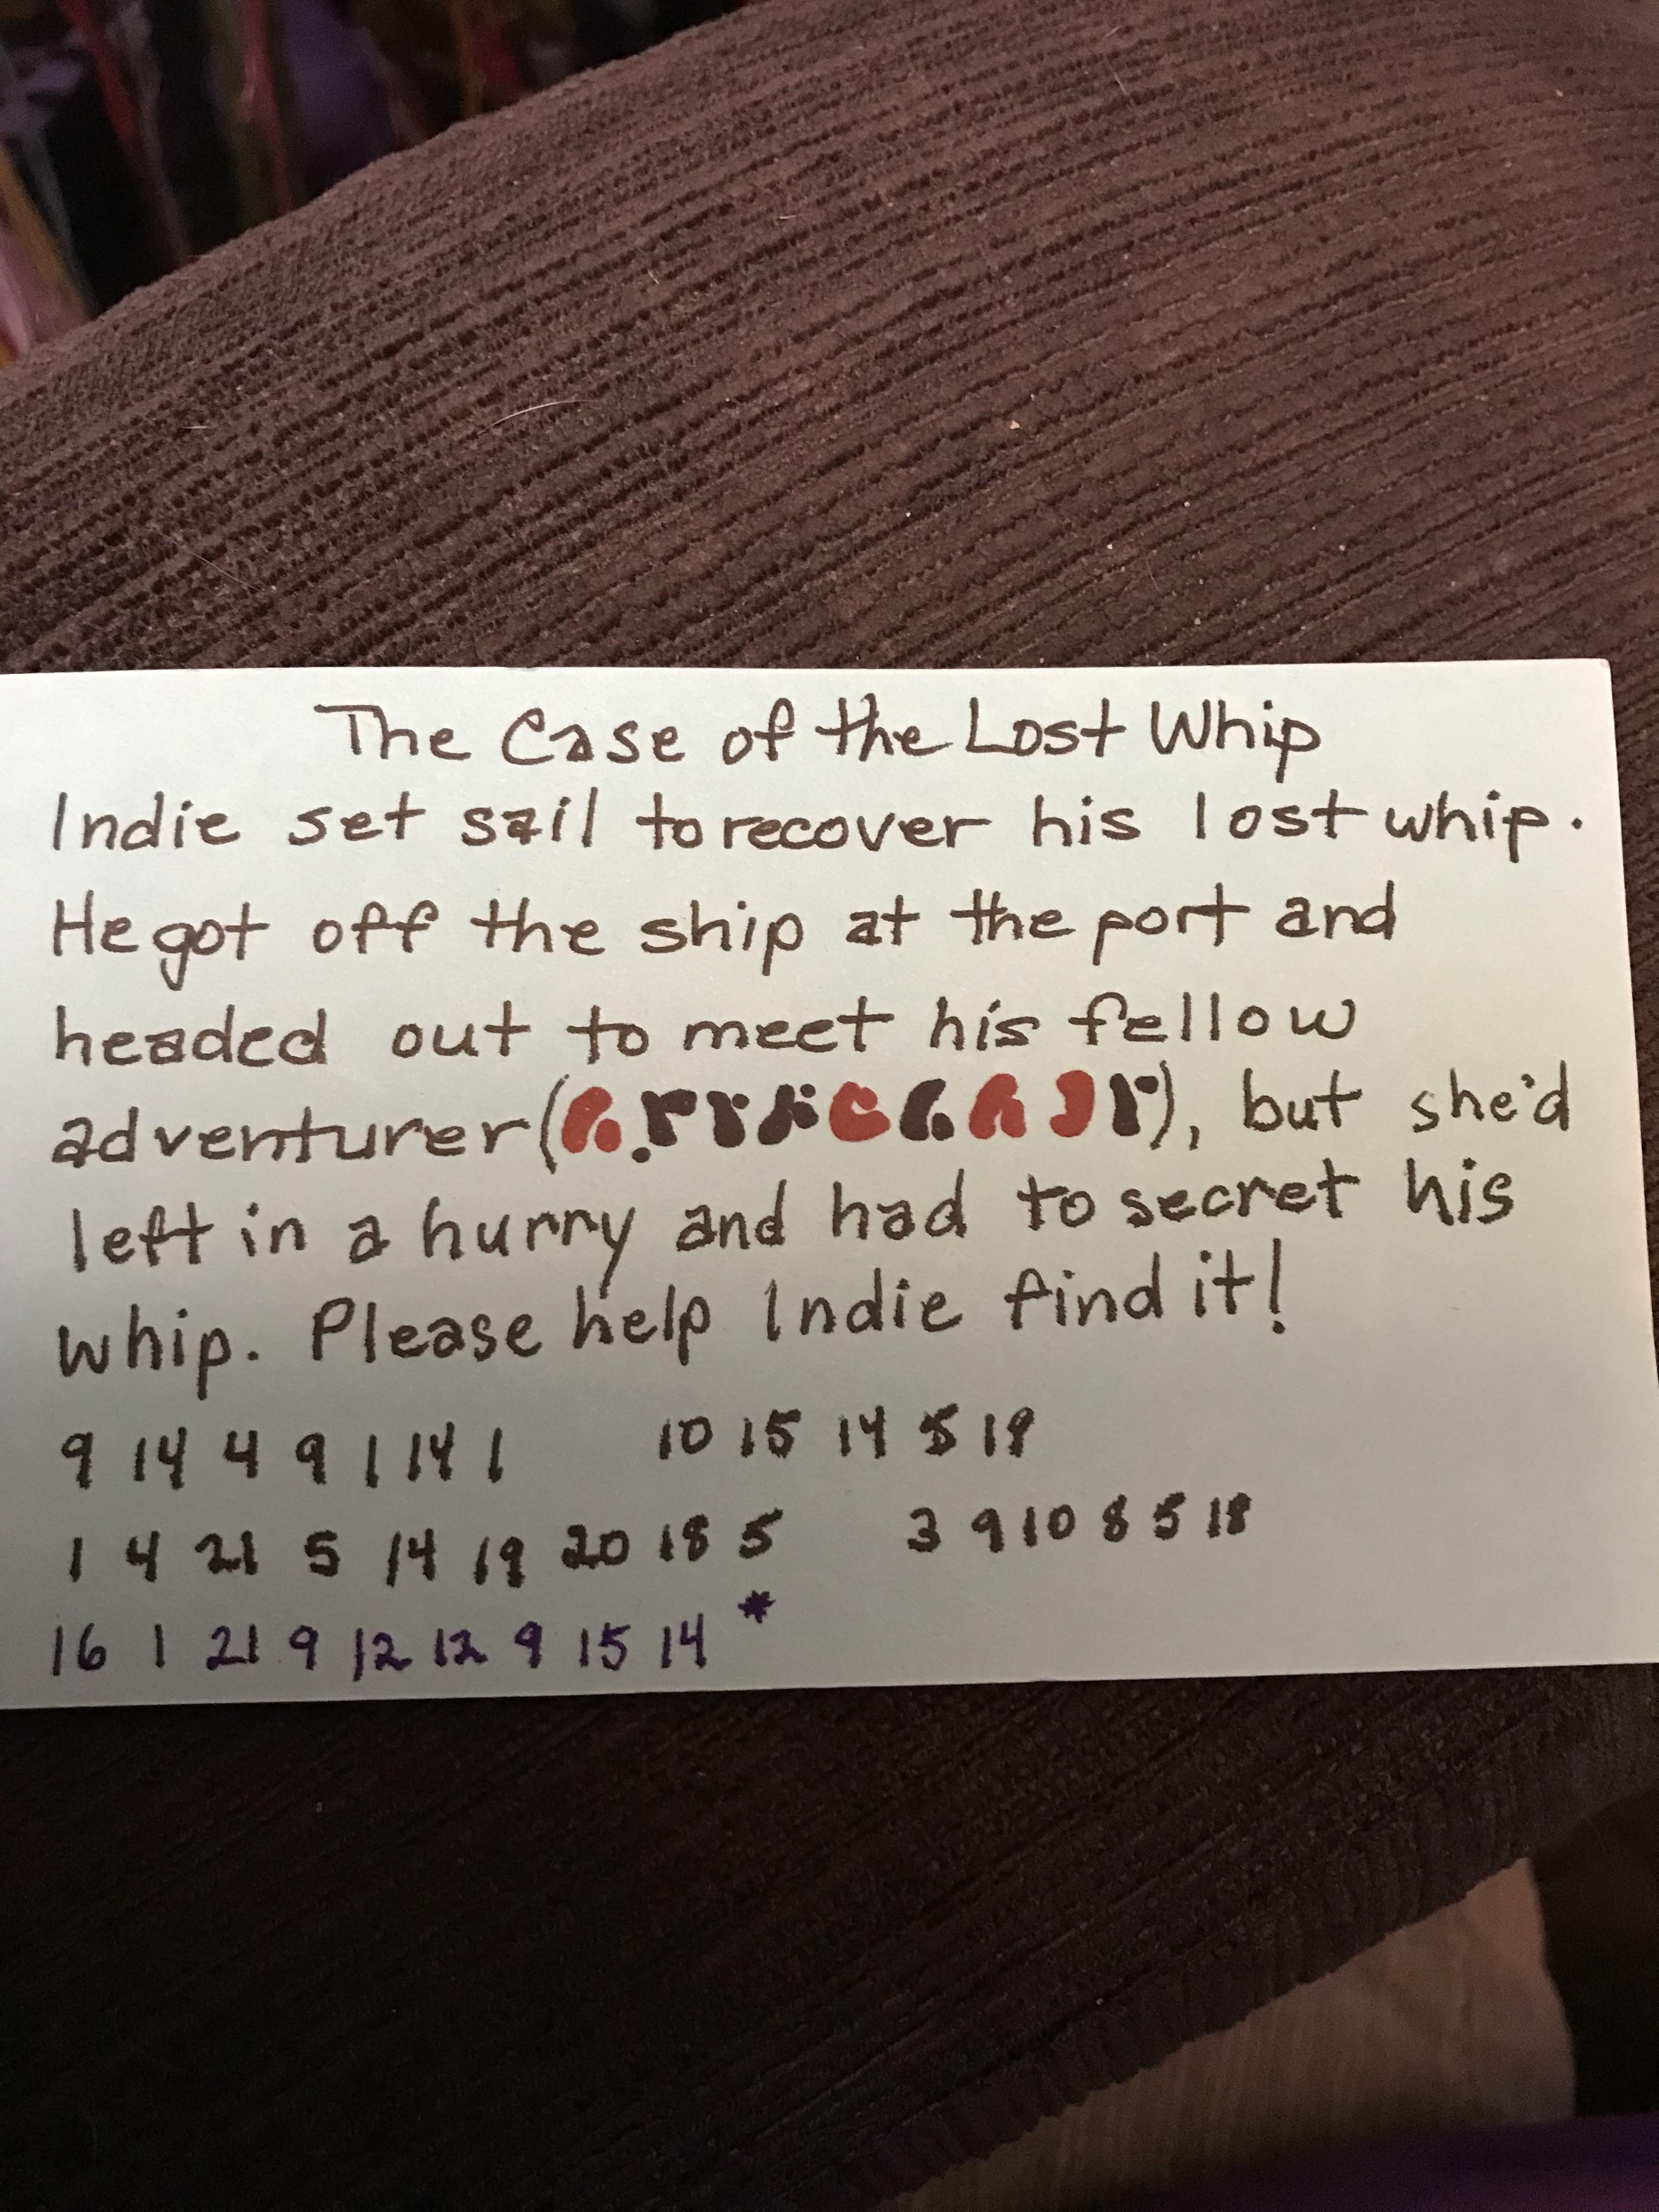 The Case of the Lost Whip
Indie set sail to recover his lost whip.
He got off the ship at the port and
headed out to meet his fellow
adventurer ( ), but she'd
left in a hurry and had to secret his
whip. Please help Indie find it!
9 14 4 9 1 14 1 10 15 14 5 19
1 4 21 5 14 19 20 18 5 3 9 10 8 5 18
16 1 21 9 12 12 9 15 14 *